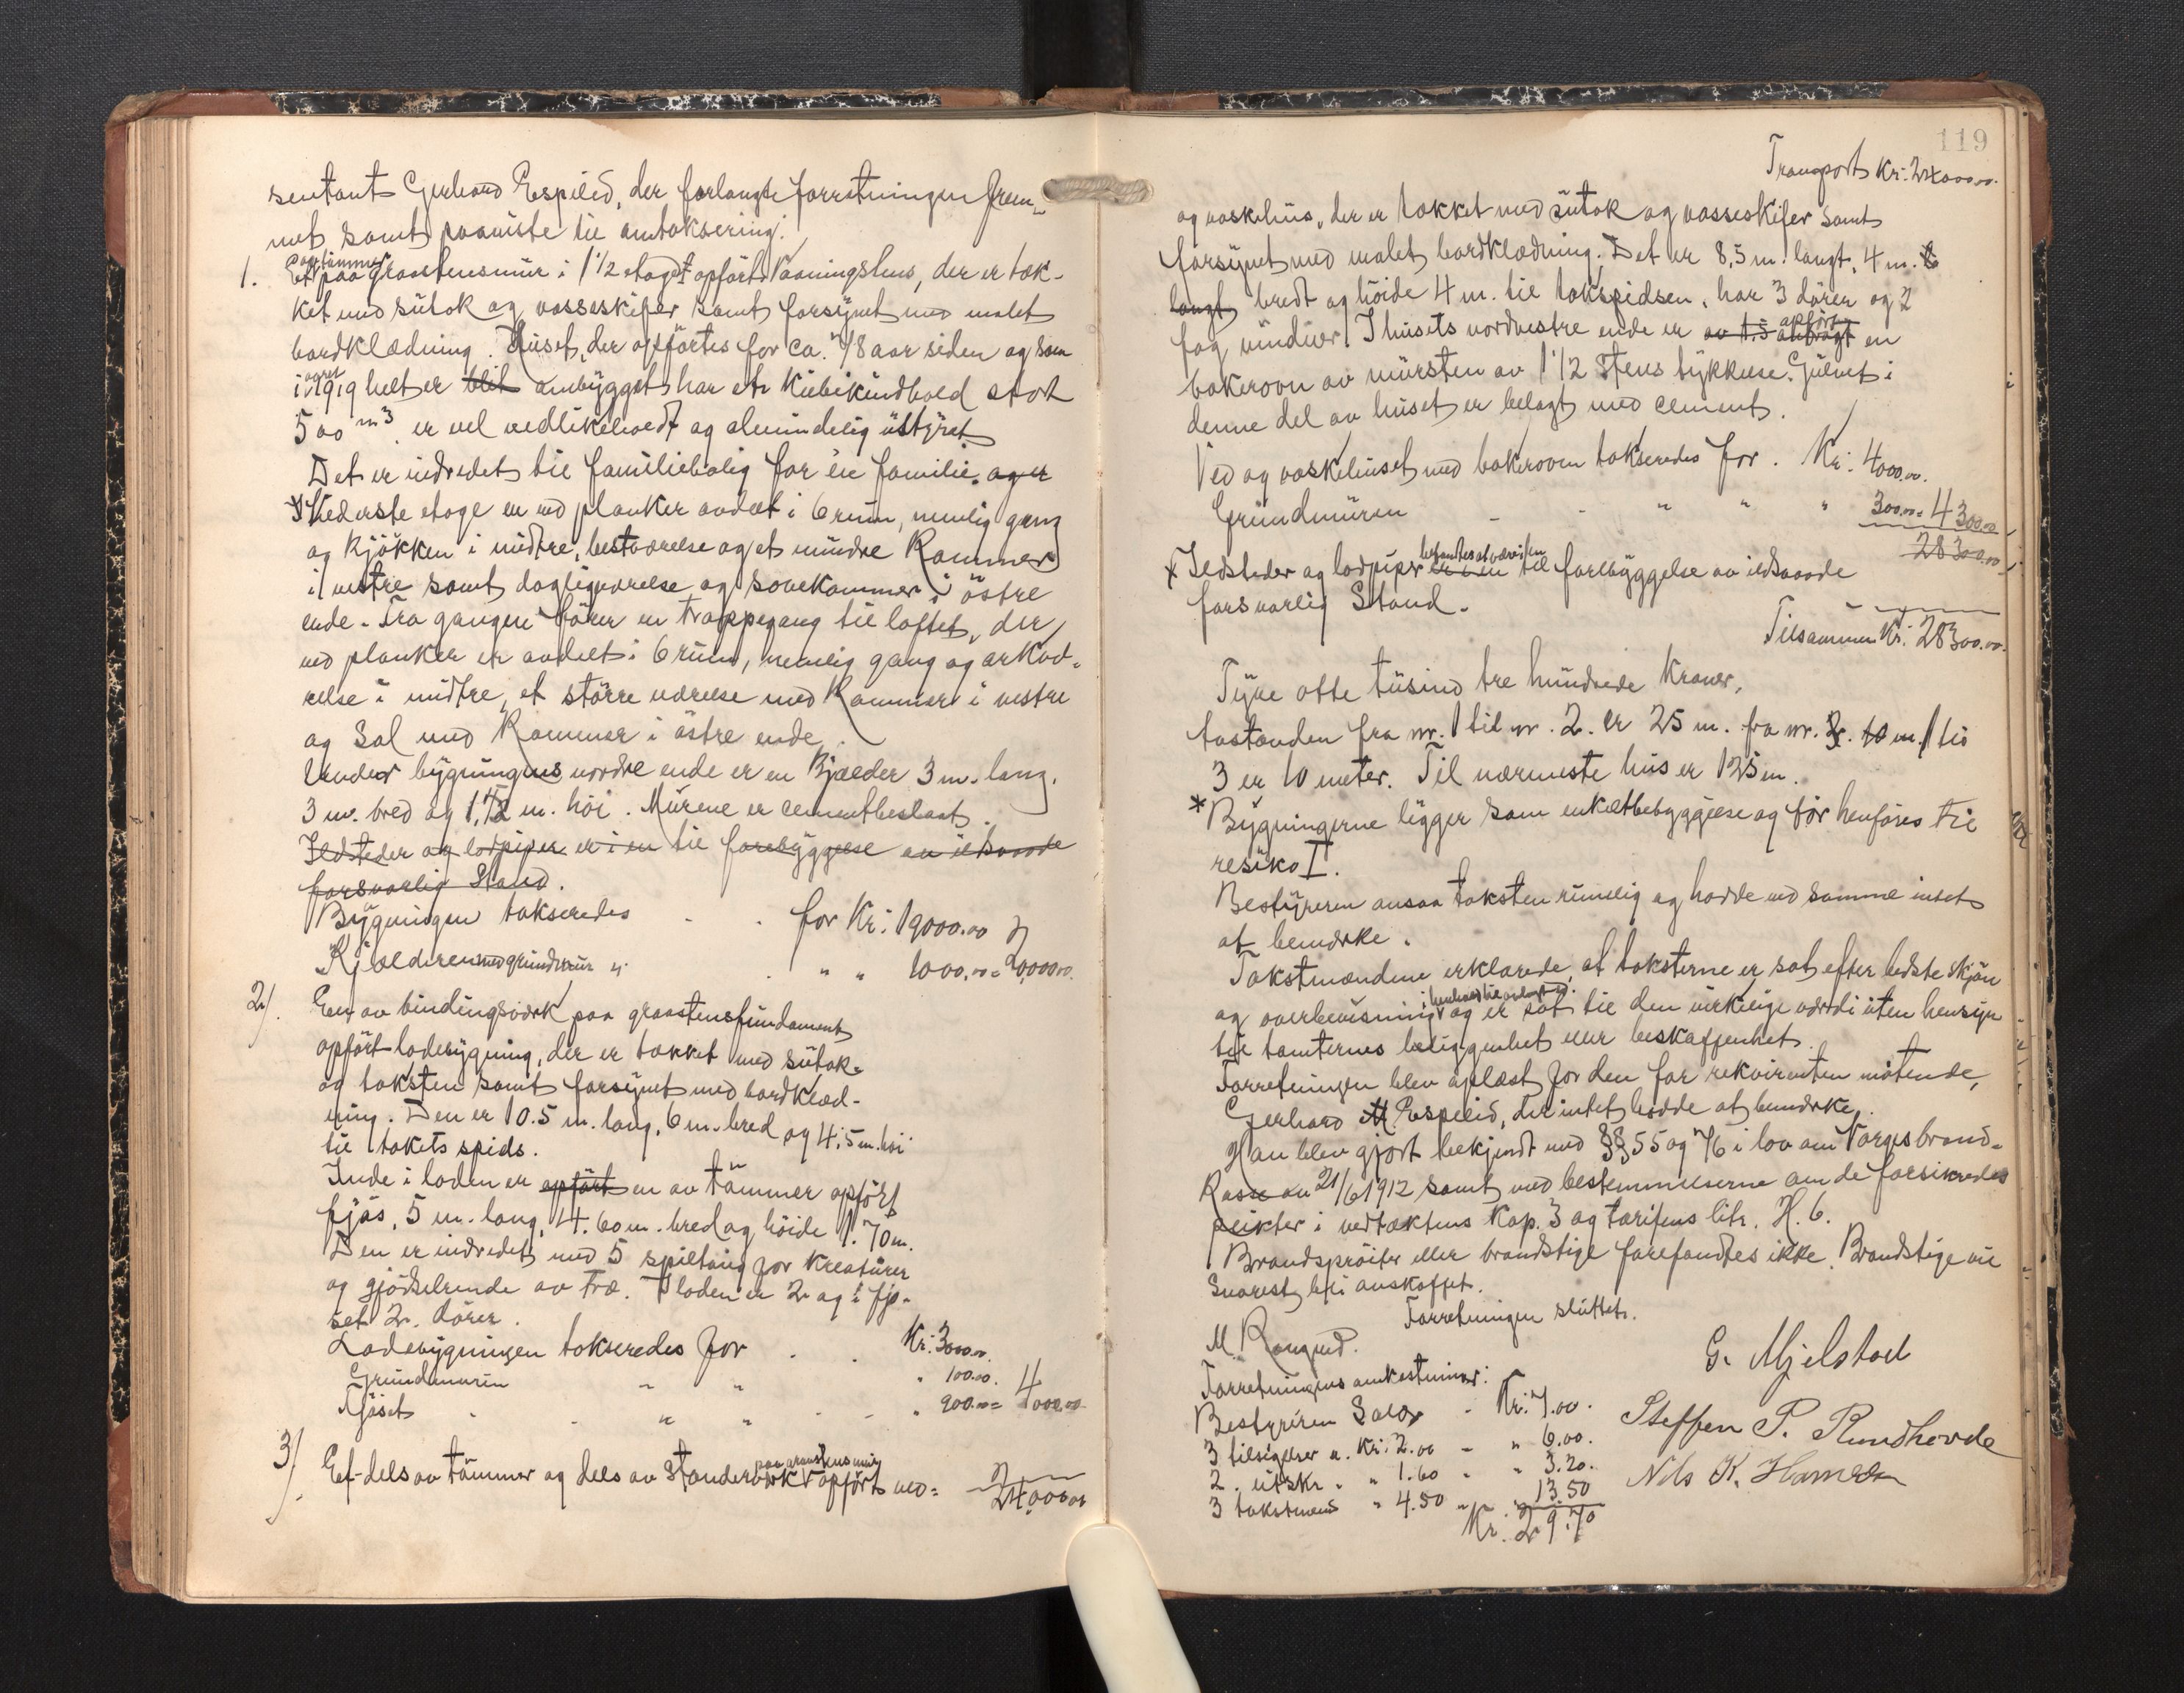 sentant Gerhard Espelid, der forlangte forretningen frem-
met samt paaviste til omtaksering.
av tömmer
1. Et paa graastensmur i 1 1/2 etaget opfört Vaaningshus, der er tæk-
ket med sutak og vosseskifer samt forsynet med malet
bordklædning. Huset, der opförtes for ca. 48 aar siden og som
aaret
i 1919 helt er blit ombygget har et Kubikindhold stort
500 m³. er vel vedlikeholdt og almindelig utstyret
Det er indredet til familiebolig for én familie. og er
Nederste etage er ved planker avdelt i 6 rum, nemlig gang
og Kjökken i midtre, bestværelse og et mindre Kammer
i vestre samt dagligværelse og sovekammer i östre
ende. Fra gangen förer en trappegang til loftet, der
ved planker er avdelt i 6 rum, nemlig gang og arkvæ-
relse i midtre, et större værelse med Kammer i vestre
og Sal med Kammer i östre ende.
Under bygningens nordre ende er en Kjælder 3 m. lang,
3 m. bred og 1,72 m. höi. Murene er cementbeslaat.
Ildsteder og lodpiper er i en til forebyggelse av ildsvaade
forsvarlig Stand.
Bygningen takseredes - - for Kr: 19000.00
Kjælderen med grundmur " . " " 1000.00 = 20,000.00
2/. En av bindingsværk paa graastensfundament
opfört ladebygning, der er tækket med sutak
og taksten samt forsynet med bordklæd-
ning. Den er 10.5 m. lang, 6 m. bred og 4,5 m. höi
til takets spids.
Inde i laden er opfört en av tömmer opfört
fjös, 5 m. lang, 4.60 m. bred og höide 1.70 m.
Den er indredet med 5 spiltaug for kreaturer
og gjödselrende av træ. I laden er 2 og i fjö-
set 2. dörer.
Ladebygningen takseredes for . . Kr: 3000.00.
Grundmuren - " " 100.00.
Fjöset - - " " - - " 900.00 = 4000.00
paa graastensmur
3/. Et dels av tömmer og dels av Standerværk opfört ved-
24,000.00
119
Transport Kr: 24000.00.
og vaskehus, der er tækket med sutak og vosseskifer samt
forsynet med malet bordklædning. Det er 8,5 m. langt, 4 m.
langt bredt og höide 4 m. til takspidsen, har 3 dörer og 2
opfört
fag vinduer. I husets nordvestre ende er anbragt en
bakerovn av mursten av 1 1/2 Stens tykkelse. Gulvet i
denne del av huset er belagt med cement.
Ved og vaskehuset med bakerovn takseredes for . Kr: 4000.00.
Grundmuren - - " " " 300.00 = 4300.00
28300.00
befandtes at være i en
* Ildsteder og lodpiper er i en til forebyggelse av ildsvaade
forsvarlig Stand.
Tilsammen Kr: 28300.00.
Tyve otte tusind tre hundrede Kroner,
Avstanden fra nr. 1 til nr. 2. er 25 m. fra nr. 2. 10 m. 1 til
3 er 10 meter. Til nærmeste hus er 125 m.
* Bygningerne ligger som enkeltbebyggelse og för henföres til
resiko I.
Bestyreren ansaa taksten rimelig og hadde ved samme intet
at bemærke.
Takstmændene erklærede, at taksterne er sat efter bedste skjön
og overbevisning og er sat til den virkelige værdi uten hensyn
til tomternes beliggenhet eller beskaffenhet.
Forretningen blev oplæst for den for rekvirenten mötende,
Gerhard M Espelid, der intet hadde at bemærke.
Han blev gjort bekjendt med §§ 55 og 76 i lov om Norges brand-
kasse av 21/6 1912 samt med bestemmelserne om de forsikredes
plikter i vedtæktens Kap. 3 og tarifens litr. H. 6.
Brandspröiter eller brandstige forefandtes ikke. Brandstige vil
snarest bli anskaffet.
Forretningen sluttet.
M. Kongud.
G. Mjelstad
Forretningens omkostninger:
Bestyreren Salær - Kr: 7.00.
Steffen P. Rundhovde
3 tilsigelser a. Kr: 2.00 - " 6.00.
2. utskr. " " 1.60 - " 3.20.
Nils K. Hamre
3 takstmænd " 4.50 - " 13.50
Kr. 29.70